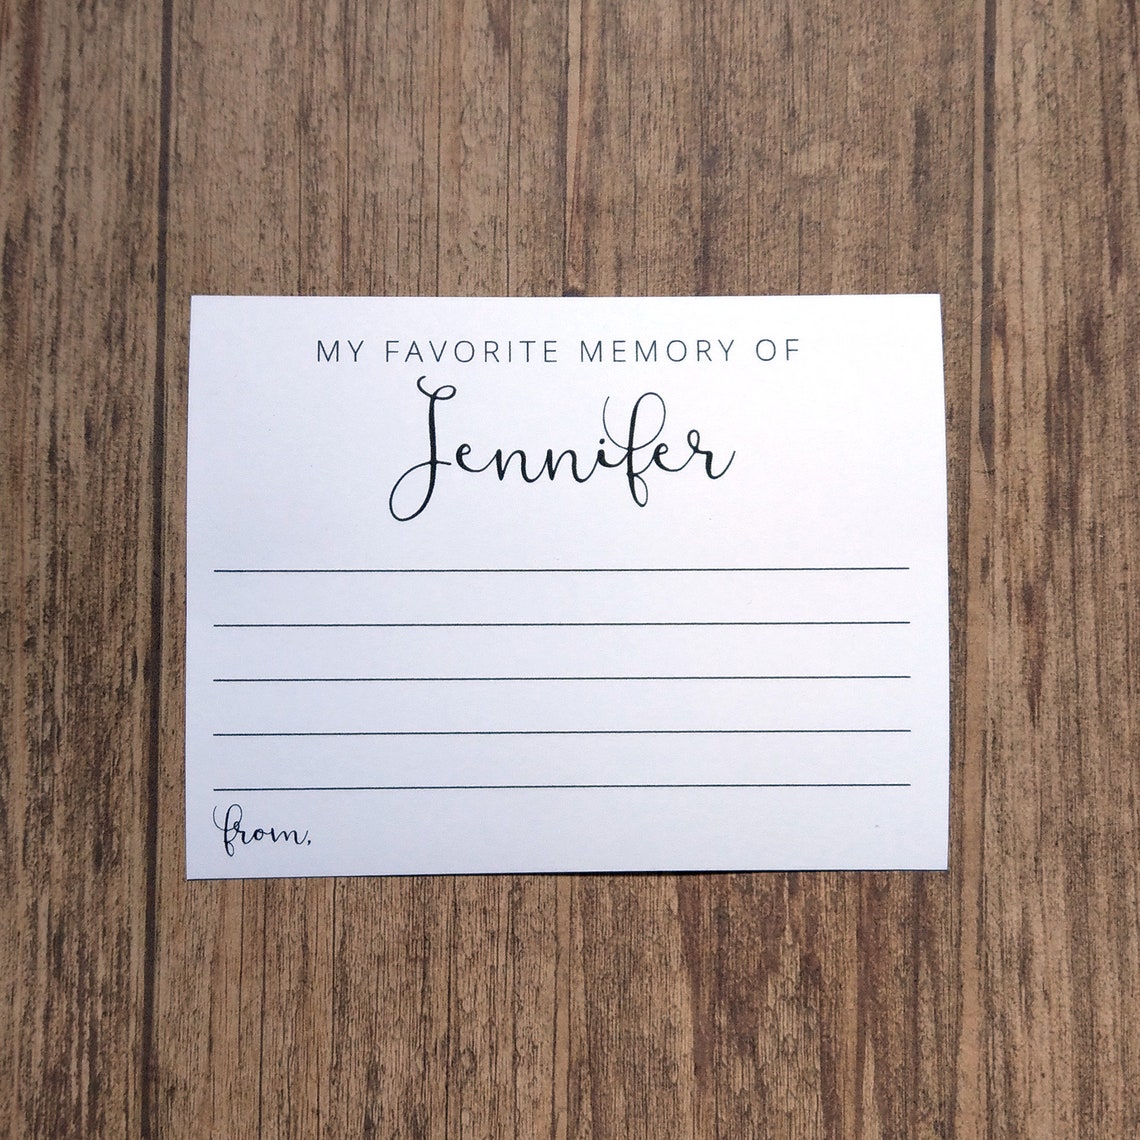 MY FAVORITE MEMORY OF
Jennifer
from,